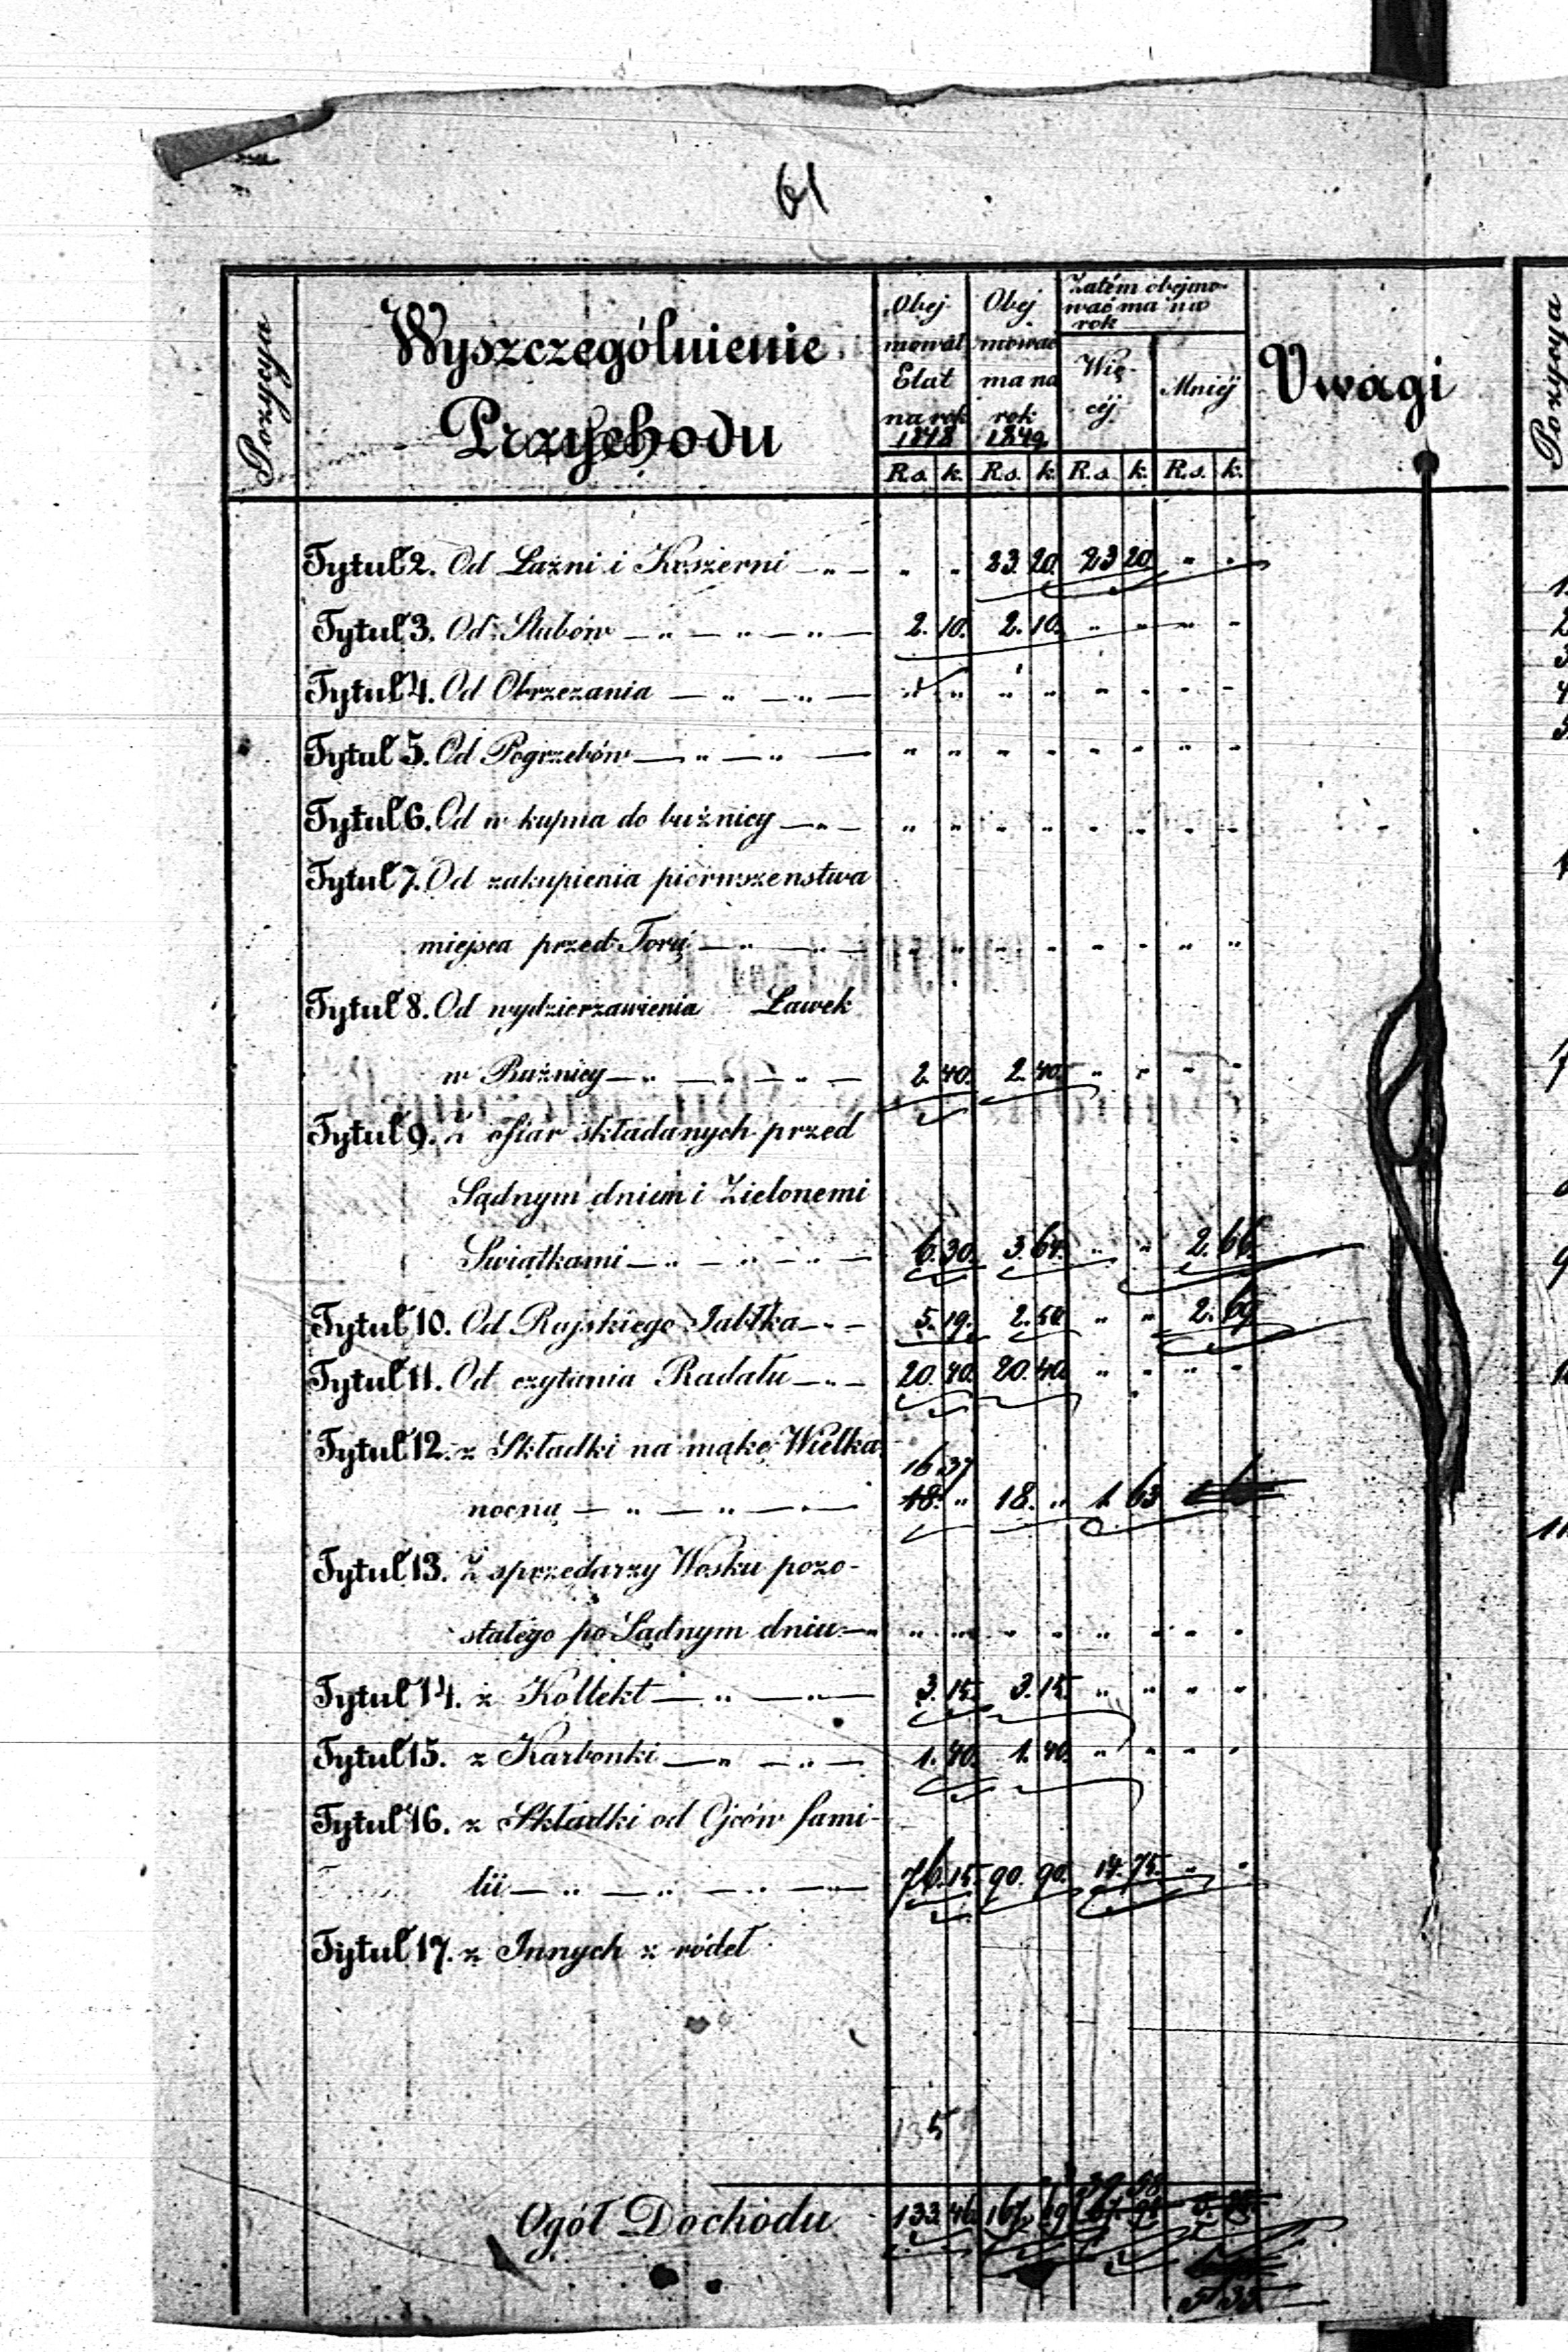 61
Pozycya
Wyszczególnienie
Przychodu
Obej
mował
Etat
na rok
1848
Obej
mować
ma na
rok
1849
Zatém obejmo-
wać ma na
rok
Wię-
céj
Mniéj
Uwagi
Pozycya
R.s. k. R.s. k. R.s. k. R.s. k.
Tytuł 2. Od Łaźni i Koszerni — „ — „ „ 23. 20. 23 20. „ „
Tytuł 3. Od Ślubów — „ — „ — „ — 2. 10. 2. 10. „ „ „ „
Tytuł 4. Od Obrzezania — „ — „ — „ „ „ „ „ „ „ „
Tytuł 5. Od Pogrzebów — „ — „ — „ „ „ „ „ „ „ „
Tytuł 6. Od w kupna do bużnicy — „ — „ „ „ „ „ „ „ „
Tytuł 7. Od zakupienia pierwszenstwa
miejsca przed Torą — „ — „ — „ „ „ „ „ „ „ „
Tytuł 8. Od wydzierzawienia Ławek
w Bużnicy — „ — „ — „ — 2. 40. 2. 40. „ „ „ „
Tytuł 9. z ofiar składanych przed
Sądnym dniem i Zielonemi
Swiątkami — „ — „ — „ — 6. 30. 3. 64. „ „ 2. 66.
Tytuł 10. Od Rajskiego Jabłka — „ — 5. 19. 2. 50. „ „ 2. 69
Tytuł 11. Od czytania Radału — „ — 20. 40. 20. 40. „ „ „ „
Tytuł 12. z Składki na mąkę Wielka
16 37
nocną — „ — „ — „ — 18. „ 18. „ 1. 63
Tytuł 13. Z sprzedarzy Wosku pozo-
stałego po Sądnym dniu — „ „ „ „ „ „ „ „ „
Tytuł 14. z Kollekt — „ — „ — 3. 15. 3. 15. „ „ „ „
Tytuł 15. z Karbonki — „ — „ — 1. 40. 1. 40. „ „ „ „
Tytuł 16. z Składki od Ojców fami-
lii — „ — „ — „ — 76. 15. 90. 90. 14. 75. „ „
Tytuł 17. z Innych z ródeł
135
39 58
Ogół Dochodu 133. 46. 167. 69
5 35